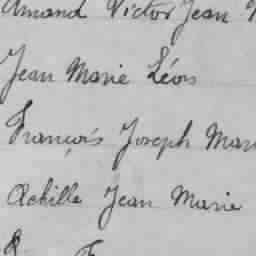 Amand Victor Jean
Jean Marie Léon
François Joseph Mari
Achille Jean Marie